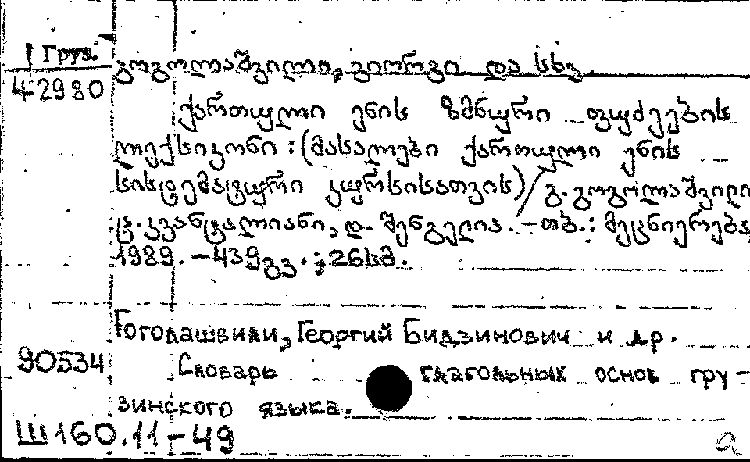 Груз. გოგოლაშვილი, გიორგი და სხვ.
42980
ქართული ენის ზმნური ფუძეების
ლექსიკონი : (მასალები ქართული ენის
სისტემატური კურსისათვის) / გ. გოგოლაშვილი
ც. კვანტალიანი, დ. შენგელია. – თბ. : მეცნიერება
1989. – 439 გვ. ; 26 სმ.
Гоголашвили, Георгий Бидзинович и др.
90534 Словарь глагольных основ гру-
зинского языка.
Ш160.11-49